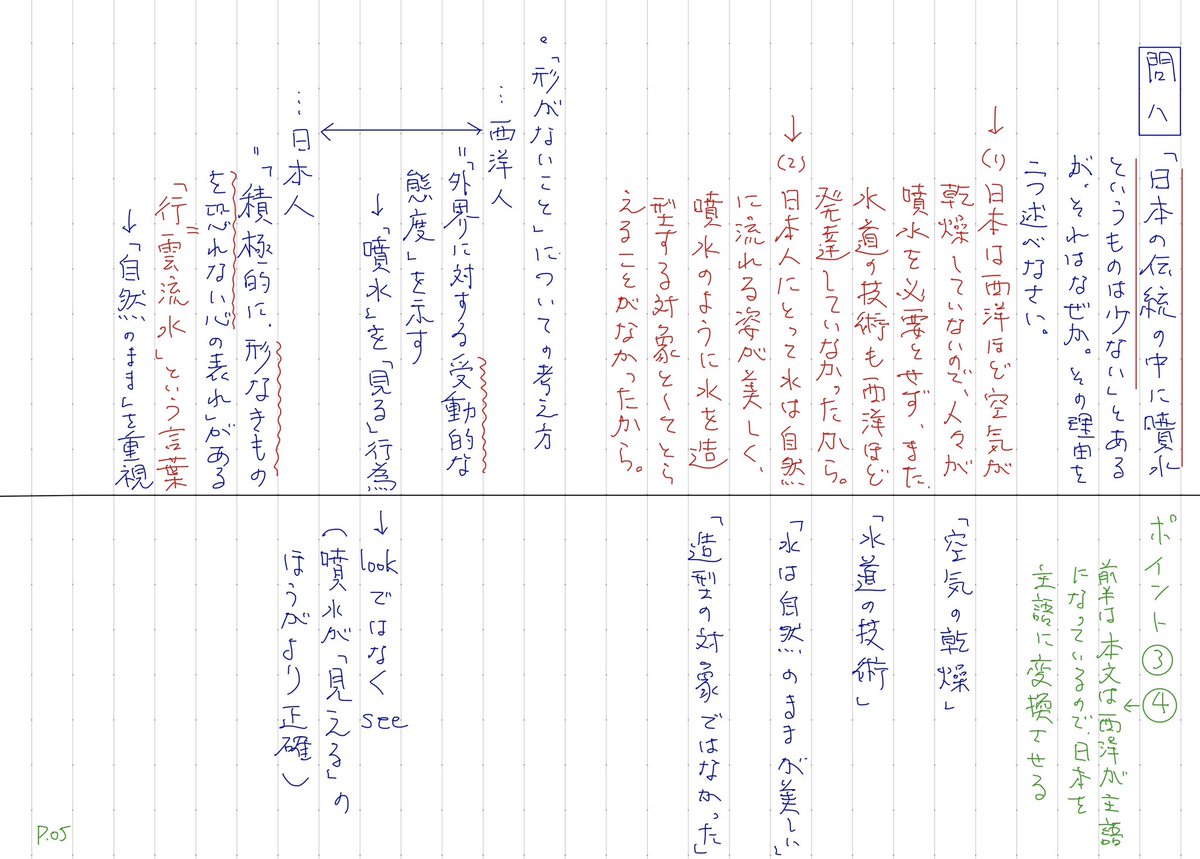 問八
「日本の伝統の中に噴水
というものは少ない」とある
が、それはなぜか。その理由を
二つ述べなさい。
→(1)日本は西洋ほど空気が
乾燥していないので、人々が
噴水を必要とせず、また、
水道の技術も西洋ほど
発達していなかったから。
→(2)日本人にとって水は自然
に流れる姿が美しく、
噴水のように水を造
型する対象としてとら
えることがなかったから。
。「形がないこと」についての考え方
…西洋人
=「外界に対する受動的な
態度」を示す
→「噴水」を「見る」行為
↔
…日本人
=「積極的に、形なきもの
を恐れない心の表れ」がある
「行雲流水」という言葉
→「自然のまま」を重視
ポイント③④
前半は本文は西洋が主語
になっているので、日本を
主語に変換させる
「空気の乾燥」
「水道の技術」
「水は自然のままが美しい」
「造型の対象ではなかった」
→lookではなくsee
(噴水が「見える」の
ほうがより正確)
P.05